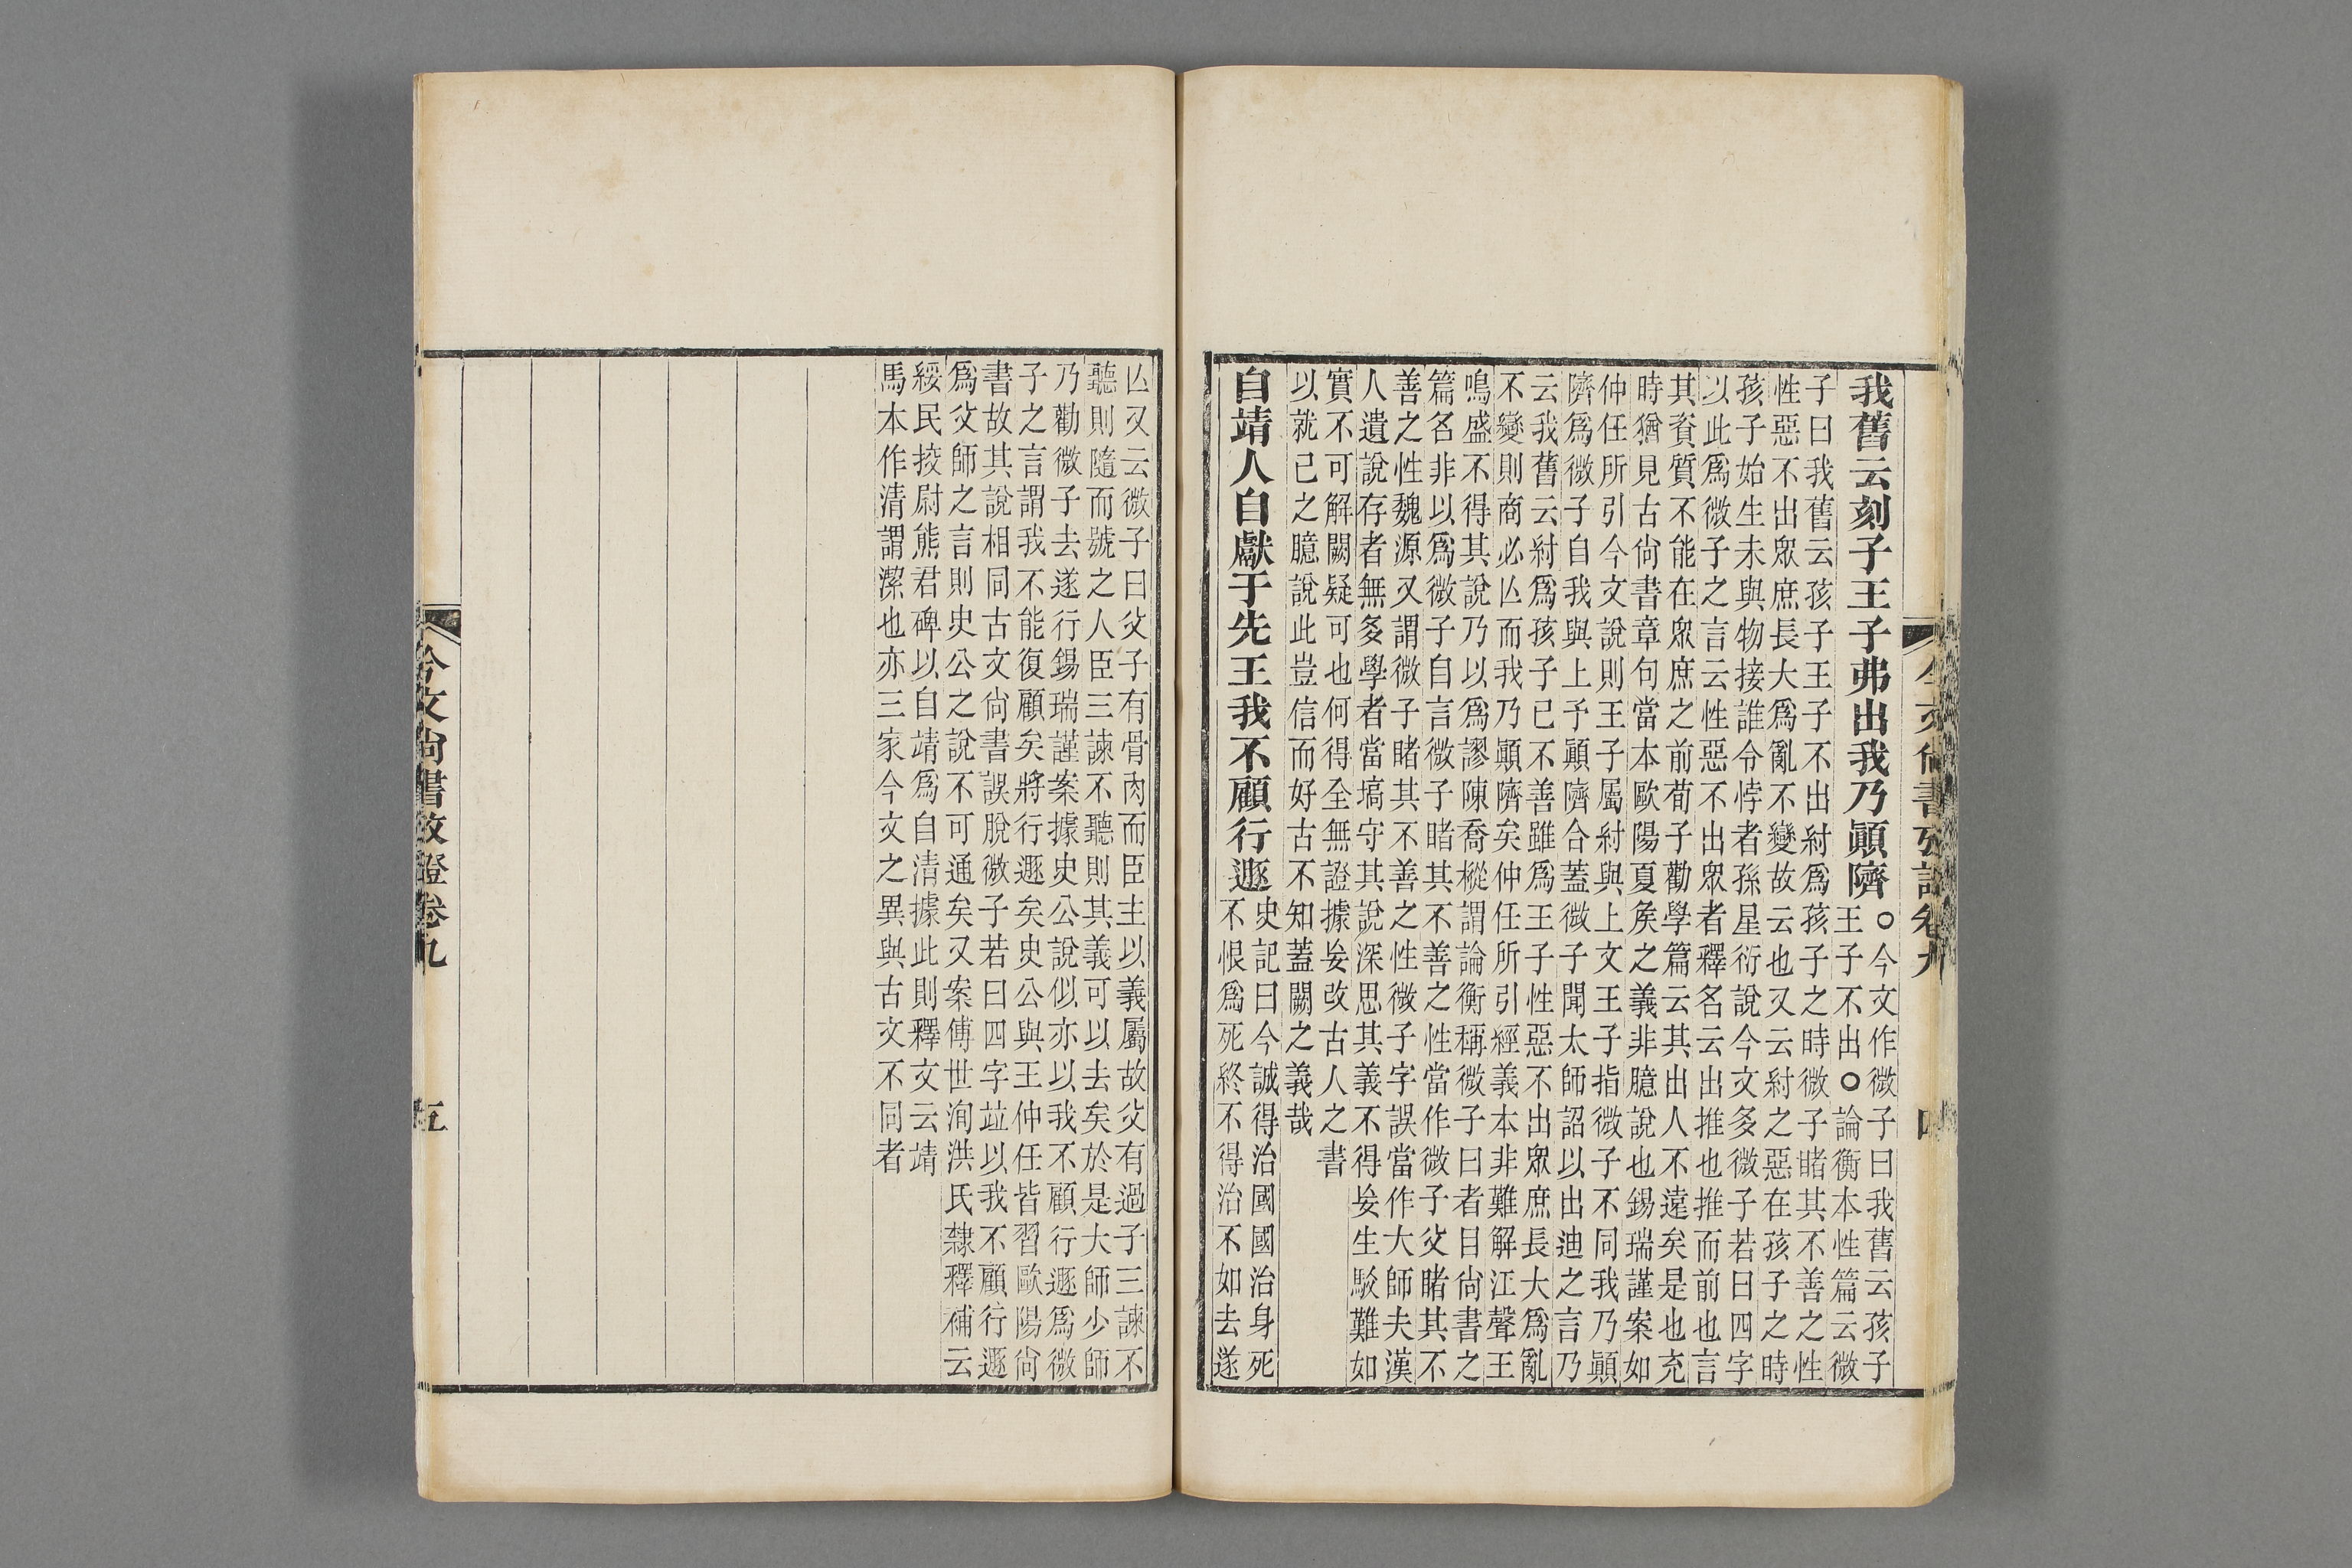 我舊云刻子王子弗出我乃顚隮○今文作微子曰我舊云孩子
王子不出○論衡本性篇云微
子曰我舊云孩子王子不出紂爲孩子之時微子睹其不善之性
性惡不出眾庶長大爲亂不變故云也又云紂之惡在孩子之時
孩子始生未與物接誰令悖者孫星衍說今文多微子若曰四字
以此爲微子之言云性惡不出眾者釋名云出推也推而前也言
其資質不能在眾庶之前荀子勸學篇云其出人不遠矣是也充
時猶見古尙書章句當本歐陽夏矦之義非臆說也錫瑞謹案如
仲任所引今文說則王子屬紂與上文王子指微子不同我乃顚
隮爲微子自我與上予顚隮合蓋微子聞太師詔以出迪之言乃
云我舊云紂爲孩子已不善雖爲王子性惡不出眾庶長大爲亂
不變則商必亾而我乃顚隮矣仲任所引經義本非難解江聲王
鳴盛不得其說乃以爲謬陳喬樅謂論衡稱微子曰者目尙書之
篇名非以爲微子自言微子睹其不善之性當作微子父睹其不
善之性魏源又謂微子睹其不善之性微子字誤當作大師夫漢
人遺說存者無多學者當墑守其說深思其義不得妄生駁難如
實不可解闕疑可也何得全無證據妄改古人之書
以就已之臆說此豈信而好古不知蓋闕之義哉
自靖人自獻于先王我不顧行遯史記曰今誠得治國國治身死
不恨爲死終不得治不如去遂
亾又云微子曰父子有骨肉而臣主以義屬故父有過子三諫不
聽則隨而號之人臣三諫不聽則其義可以去矣於是大師少師
乃勸微子去遂行錫瑞謹案據史公說似亦以我不顧行遯爲微
子之言謂我不能復顧矣將行遯矣史公與王仲任皆習歐陽尙
書故其說相同古文尙書誤脫微子若曰四字竝以我不顧行遯
爲父師之言則史公之說不可通矣又案傅世洵洪氏隸釋補云
綏民挍尉熊君碑以自靖爲自清據此則釋文云靖
馬本作清謂潔也亦三家今文之異與古文不同者
今文尙書攷證卷九
五